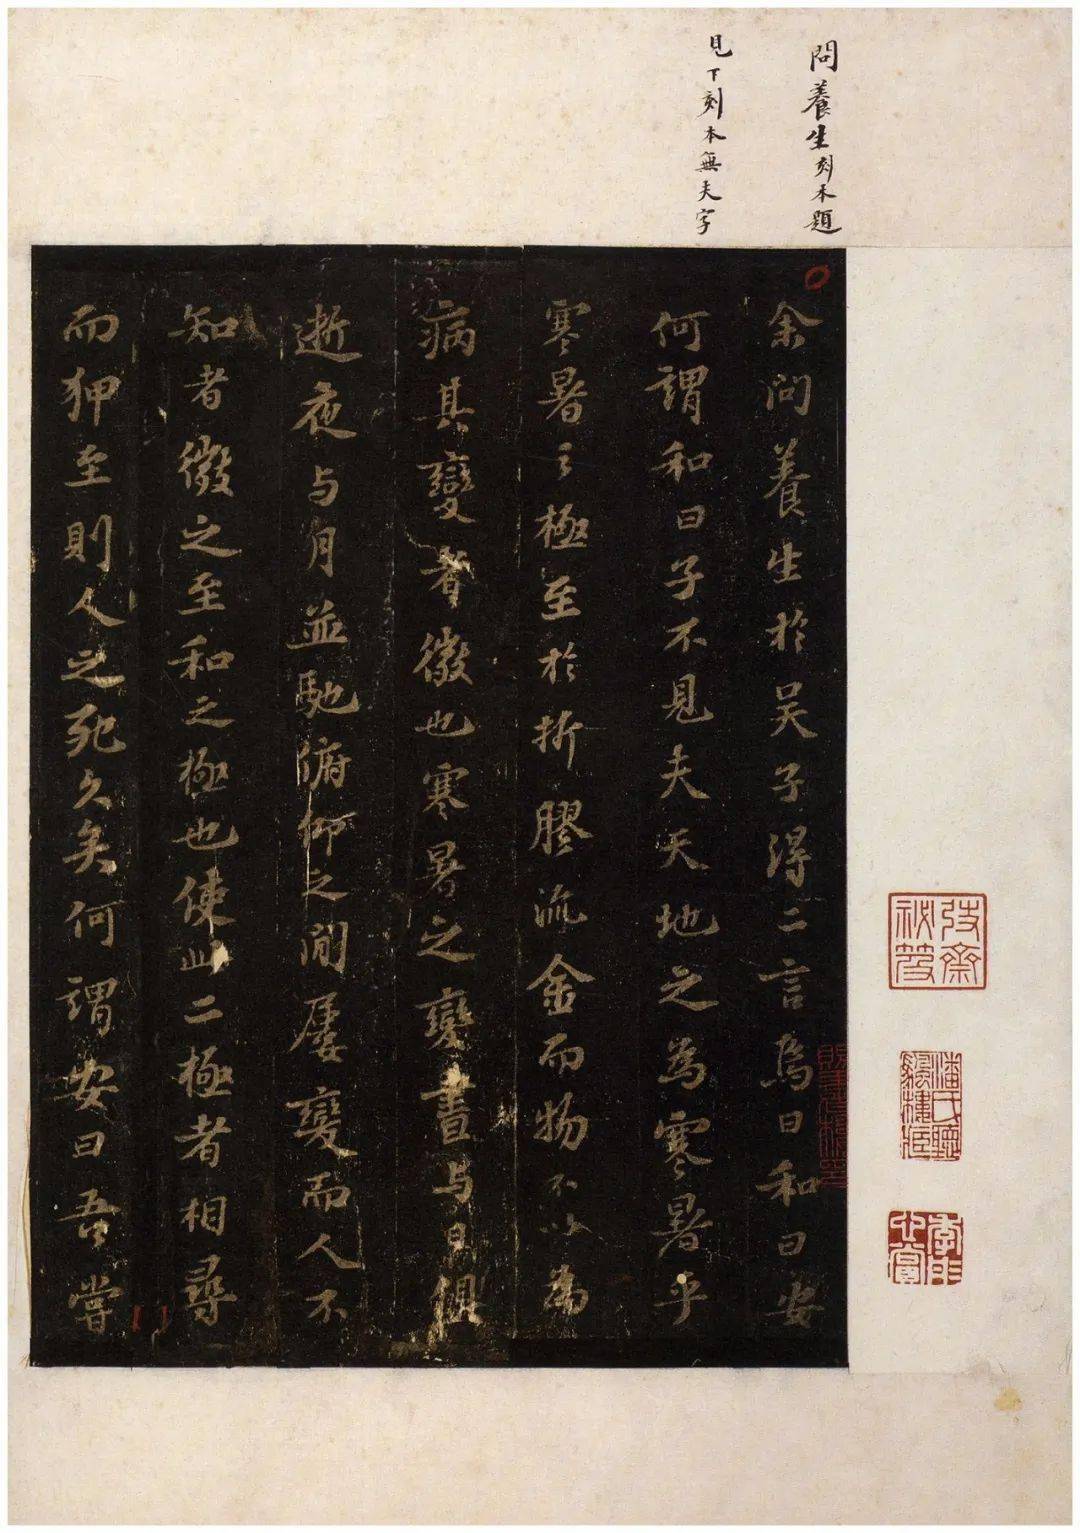 問養生刻本題
見下刻本無夫字
余問養生於吴子得二言焉曰和曰安
何謂和曰子不見夫天地之為寒暑乎
寒暑之極至於折膠流金而物不以為
病其變者微也寒暑之變晝与日俱
逝夜与月並馳俯仰之間屢變而人不
知者微之至和之極也使此二極者相尋
而狎至則人之死久矣何謂安曰吾嘗
弢齋祕笈
潘氏聽颿樓藏
季彤心賞